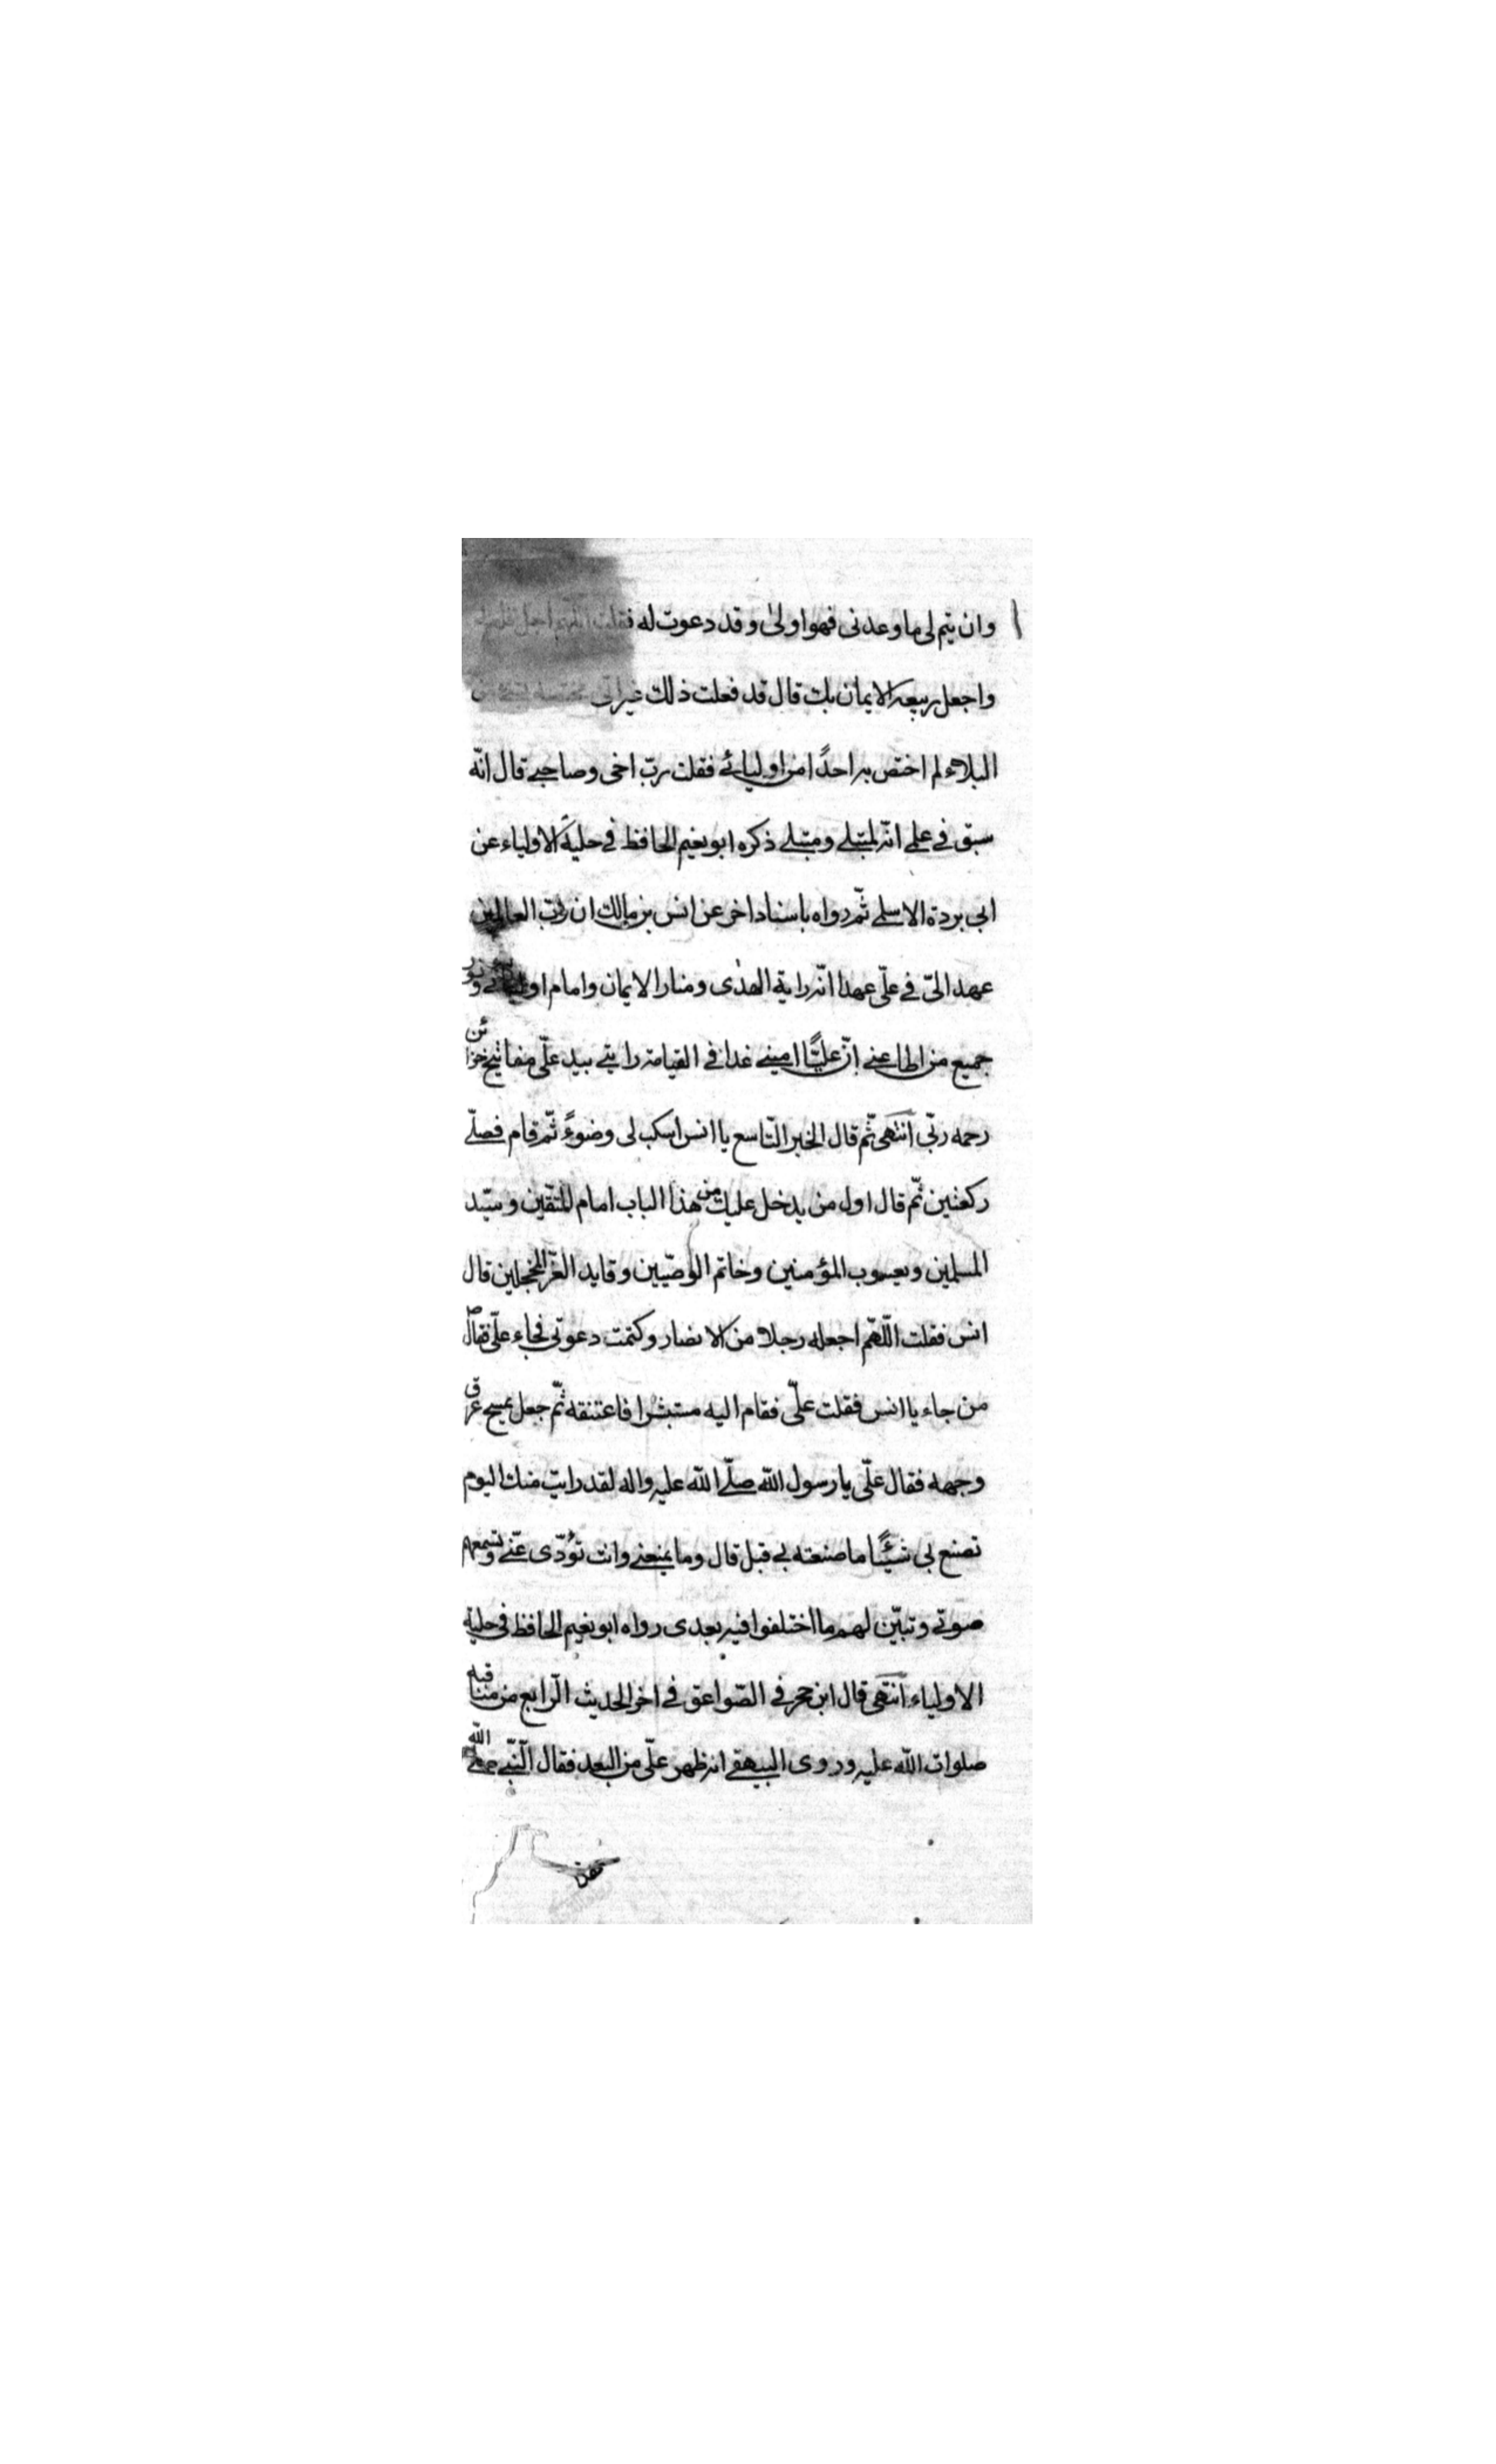 وان يتم لى ما وعدنى فهو اولىٰ وقد دعوت له فقلت اللهم اجل قلبه
واجعل ربيعه الايمان بك قال قد فعلت ذلك غير انى مختصه بشئ من
البلاء لم اختص به احدًا من اوليائے فقلت ربّ اخى وصاحبے قال انّه
سبق فے علمے انّه لمبتلے ومبتلے ذكره ابو نعيم الحافظ فے حلية الاولياء عن
ابى بردة الاسلمے ثمّ رواه باسناد اخر عن انس بن مالك ان ربّ العالمين
عهد الىّ فے علّى عهدا انّه راية الهدٰى ومنار الايمان وامام اوليائے ونور
جميع من اطاعنے انّ عليًّا امينے غدا فے القيامة رايتے بيد علّى مفاتيح خزائن
رحمه ربّى انتهى ثمّ قال الخبر التّاسع يا انس اسكب لى وضوءً ثمّ قام فصلّے
ركعتين ثمّ قال اول من يدخل عليك من هذا الباب امام المتّقين وسيّد
المسلمين ويعسوب المؤمنين وخاتم الوصّيين وقايد الغرّ المحجلين قال
انس فقلت اللّهمّ اجعله رجلا من الانصار وكتمت دعوتى فجاء علّى فقال ص
من جاء يا انس فقلت علّى فقام اليه مستبشرا فاعتنقه ثمّ جعل يمسح عرق
وجهه فقال علّى يا رسول الله صلّے الله عليه واله لقد رايت منك اليوم
تصنع بى شيئًا ما صنعته بے قبل قال وما يمنعنے وانت تؤدّى عنّے وتسمعهم
صوتے وتبيّن لهم ما اختلفوا فيه بعدى رواه ابو نعيم الحافظ فى حلية
الاولياء انتهى قال ابن حجر فے الصّواعق فے اخر الحديث الرّابع من مناقبه
صلوات الله عليه وروى البيهقے انه ظهر علّى من البعد فقال النّبّے صلى الله
فقال